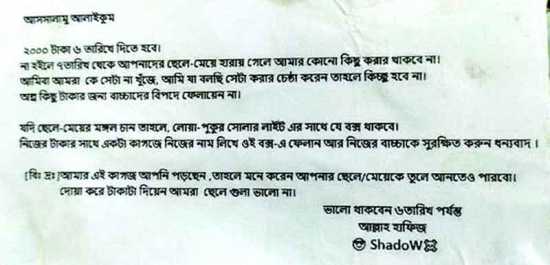 আসসালামু আলাইকুম
২০০০ টাকা ৬ তারিখে দিতে হবে।
না হইলে ৭তারিখ থেকে আপনাদের ছেলে-মেয়ে হারায় গেলে আমার কোনো কিছু করার থাকবে না।
আমিবা আমরা কে সেটা না খুঁজে, আমি যা বলছি সেটা করার চেষ্টা করেন তাহলে কিচ্ছু হবে না।
অল্প কিছু টাকার জন্য বাচ্চাদের বিপদে ফেলায়েন না।
যদি ছেলে-মেয়ের মঙ্গল চান তাহলে, লোয়া-পুকুর সোলার লাইট এর সাথে যে বক্স থাকবে।
নিজের টাকার সাথে একটা কাগজে নিজের নাম লিখে ওই বক্স-এ ফেলান আর নিজের বাচ্চাকে সুরক্ষিত করুন ধন্যবাদ ।
[বিঃ দ্রঃ]আমার এই কাগজ আপনি পড়ছেন ,তাহলে মনে করেন আপনার ছেলে/মেয়েকে তুলে আনতেও পারবো।
দোয়া করে টাকাটা দিয়েন আমরা ছেলে গুলা ভালো না।
ভালো থাকবেন ৬তারিখ পর্যন্ত
আল্লাহ হাফিজ
😎 ShadoW